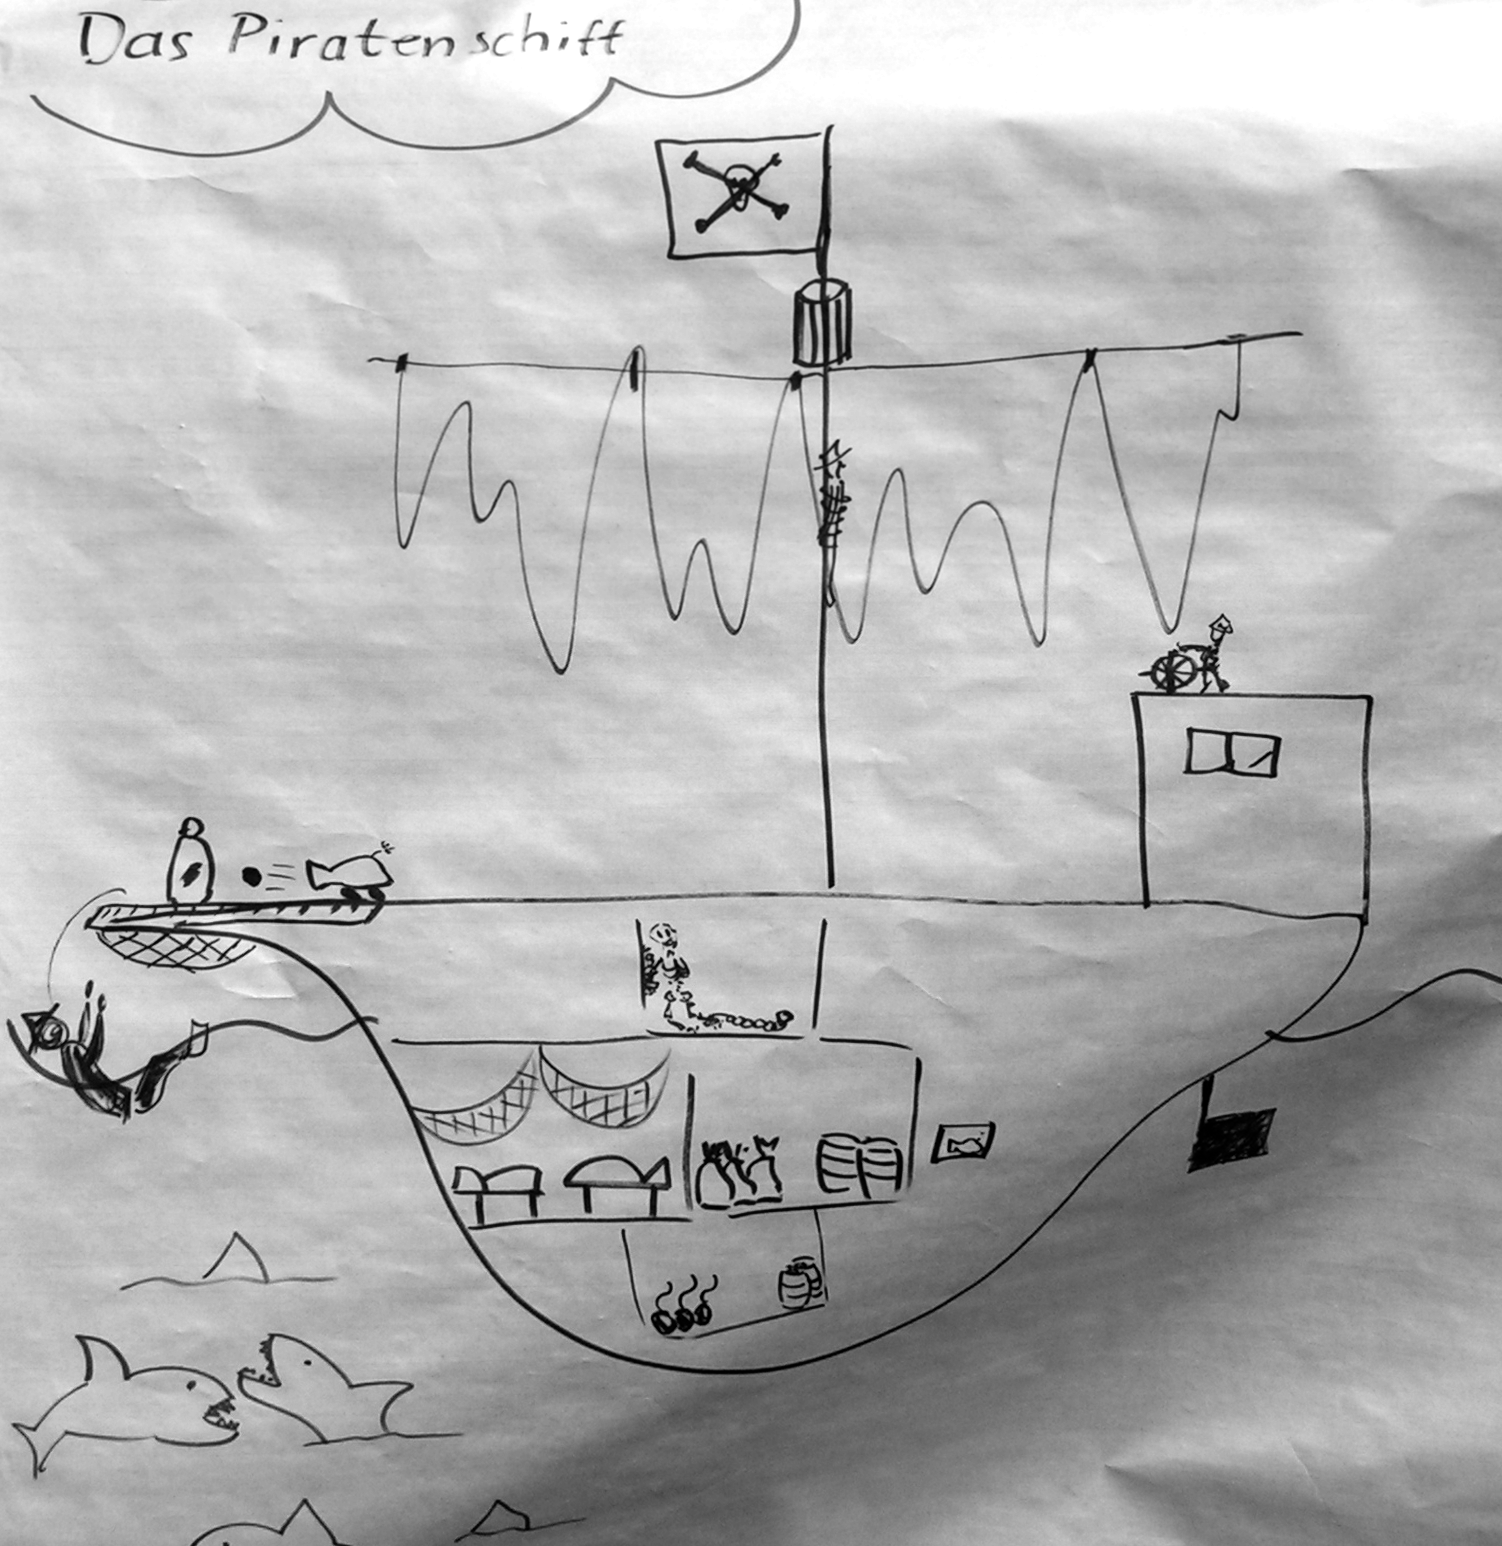 Das Piratenschiff